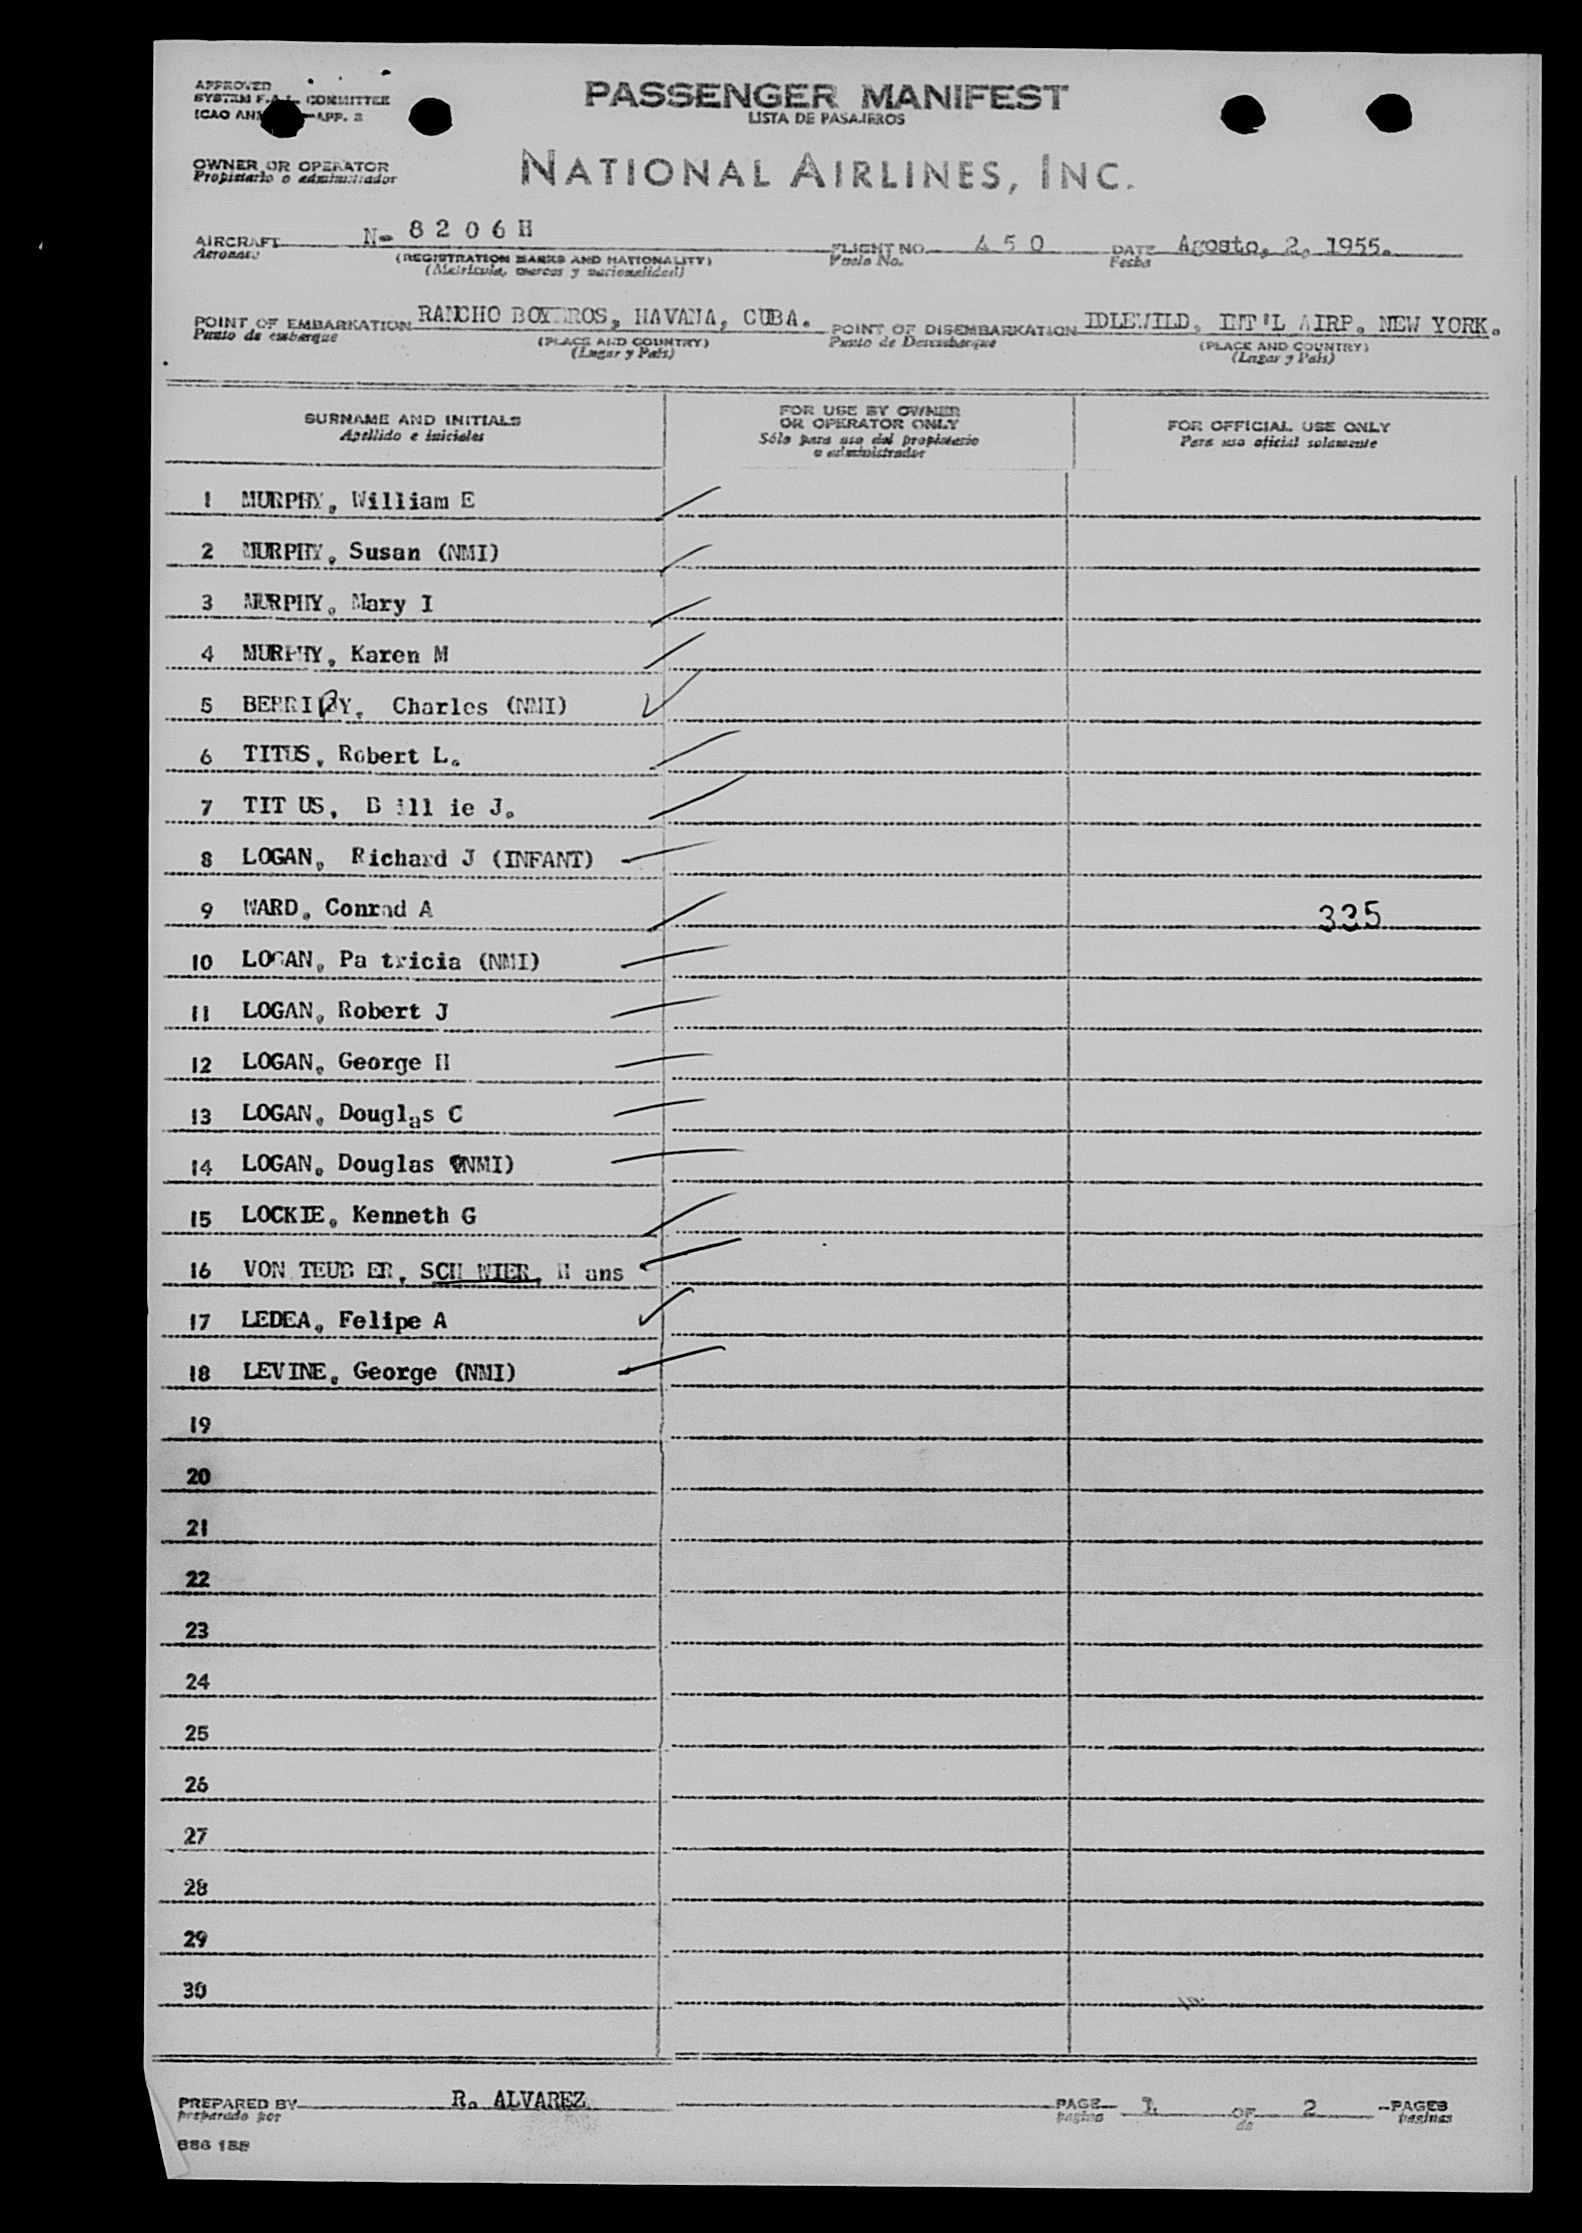 APPROVED
SYSTEM F.A.L. COMMITTEE
ICAO APP. 2
PASSENGER MANIFEST
LISTA DE PASAJEROS
OWNER OR OPERATOR
Propietario o administrador
NATIONAL AIRLINES, INC.
AIRCRAFT N- 8 2 0 6 H FLIGHT NO. 4 5 0 DATE Agosto, 2, 1955.
Aeronave (REGISTRATION MARKS AND NATIONALITY) Vuelo No. Fecha
(Matricula, marcas y nacionalidad)
POINT OF EMBARKATION RANCHO BOYEROS, HAVANA, CUBA. POINT OF DISEMBARKATION IDLEWILD, INT'L AIRP. NEW YORK.
Punto de embarque (PLACE AND COUNTRY) Punto de Desembarque (PLACE AND COUNTRY)
(Lugar y País) (Lugar y País)
SURNAME AND INITIALS FOR USE BY OWNER OR OPERATOR ONLY FOR OFFICIAL USE ONLY
Apellido e iniciales Sólo para uso del propietario o administrador Para uso oficial solamente
1 MURPHY, William E
2 MURPHY, Susan (NMI)
3 MURPHY, Mary I
4 MURPHY, Karen M
5 Charles (NMI)
6 TITUS, Robert L.
7 TIT US, B ill ie J.
8 LOGAN, Richard J (INFANT)
9 WARD, Conrad A 335
10 LOGAN, Pa tricia (NMI)
11 LOGAN, Robert J
12 LOGAN, George H
13 LOGAN, Douglas C
14 LOGAN, Douglas (NMI)
15 LOCKIE, Kenneth G
16 VON TEUB ER, SCH WIER, H ans
17 LEDEA, Felipe A
18 LEVINE, George (NMI)
19
20
21
22
23
24
25
26
27
28
29
30
PREPARED BY R. ALVAREZ PAGE 1 OF 2 PAGES
preparado por pagina de paginas